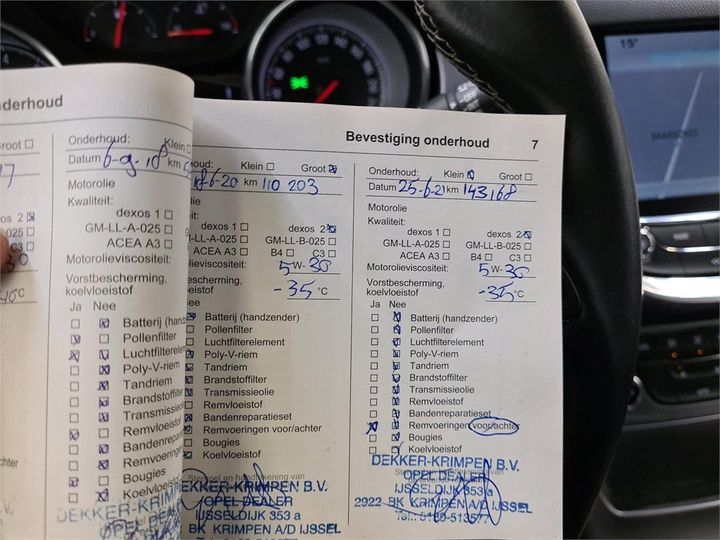 nderhoud
Groot
Onderhoud: Klein
Datum 6-9-18 km
Motorolie
Kwaliteit:
dexos 1
GM-LL-A-025
ACEA A3
Motorolieviscositeit:
Vorstbescherming,
koelvloeistof
Ja Nee
Batterij (handzender)
Pollenfilter
Luchtfilterelem
Poly-V-riem
Tandriem
Brandstoffilter
Transmissieo
Remvloeistof
Bandenrepara
Remvoeringen
Bougies
Koelvloeist
DEKKER-KRIM
OPEL DEA
Bevestiging onderhoud 7
houd: Klein Groot
6-20 km 110 203
dexos 1 dexos 2
LL-A-025 GM-LL-B-025
ACEA A3 B4 C3
lieviscositeit: 5W-30
escherming,
eistof -35 °C
ee
Batterij (handzender)
Pollenfilter
Luchtfilterelement
Poly-V-riem
Tandriem
Brandstoffilter
Transmissieolie
Remvloeistof
Bandenreparatieset
Remvoeringen voor/achter
Bougies
Koelvloeistof
EKKER-KRIMPEN B.V.
OPEL DEALER
IJSSELDIJK 353 a
BK KRIMPEN A/D IJSSEL
Onderhoud: Klein Groot
Datum 25-6-21 km 143168
Motorolie
Kwaliteit:
dexos 1 dexos 2
GM-LL-A-025 GM-LL-B-025
ACEA A3 B4 C3
Motorolieviscositeit: 5W-30
Vorstbescherming,
koelvloeistof -35 °C
Ja Nee
Batterij (handzender)
Pollenfilter
Luchtfilterelement
Poly-V-riem
Tandriem
Brandstoffilter
Transmissieolie
Remvloeistof
Bandenreparatieset
Remvoeringen voor/achter
Bougies
Koelvloeistof
Stempel en handtekening van
DEKKER-KRIMPEN B.V.
OPEL DEALER
IJSSELDIJK 353 a
2922 BK KRIMPEN A/D IJSSEL
Tel.: 0180-513577
15°